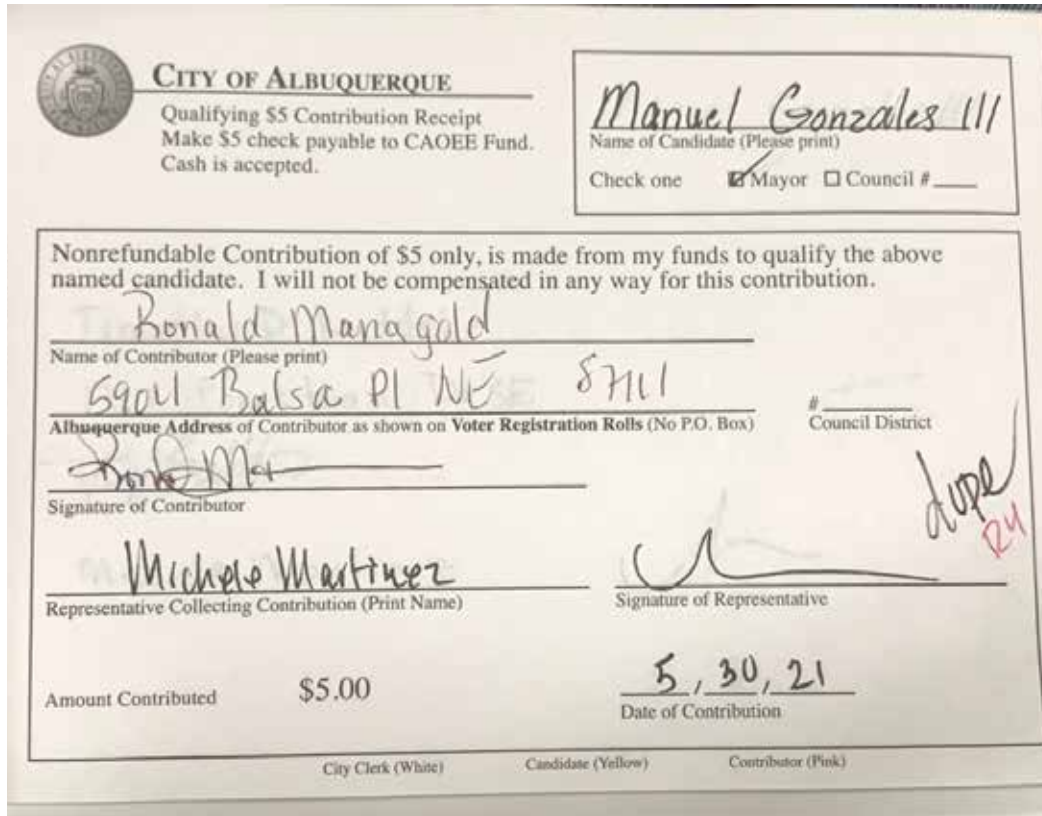 CITY OF ALBUQUERQUE
Qualifying $5 Contribution Receipt
Make $5 check payable to CAOEE Fund.
Cash is accepted.
Manuel Gonzales III
Name of Candidate (Please print)
Check one Mayor Council #
Nonrefundable Contribution of $5 only, is made from my funds to qualify the above
named candidate. I will not be compensated in any way for this contribution.
Ronald Managold
Name of Contributor (Please print)
5904 Balsa Pl NE 87111
#
Albuquerque Address of Contributor as shown on Voter Registration Rolls (No P.O. Box)
Council District
Signature of Contributor
dupe
Michele Martinez
Representative Collecting Contribution (Print Name)
Signature of Representative
Amount Contributed $5.00
5, 30, 21
Date of Contribution
City Clerk (White) Candidate (Yellow) Contributor (Pink)